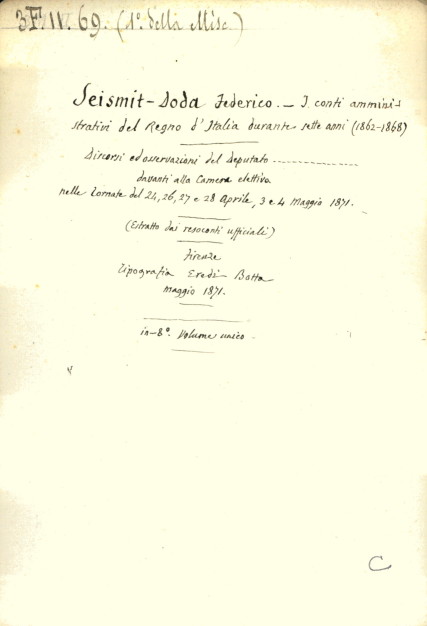 3.F.IV.69. (1º. della Misc.)
Seismit-Doda Federico. — I conti ammini-
strativi del Regno d'Italia durante sette anni (1862-1868)
Discorsi ed osservazioni del Deputato ------------------
davanti alla Camera elettiva
nelle tornate del 24, 26, 27 e 28 Aprile, 3 e 4 Maggio 1871.
(Estratto dai resoconti ufficiali)
Firenze
Tipografia Eredi Botta
Maggio 1871.
in-8º. Volume unico.
C